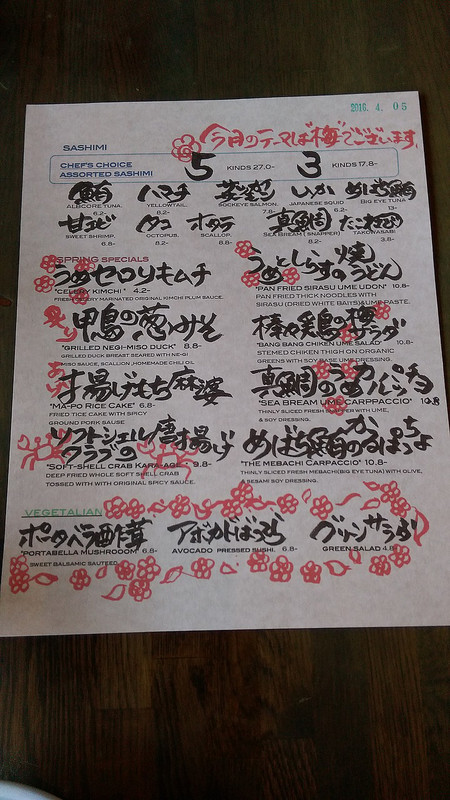 2016. 4. 05
今月のテーマは"梅"でございます。
SASHIMI
CHEF'S CHOICE
ASSORTED SASHIMI
5 KINDS 27.0- 3 KINDS 17.8-
ハマチ いか めばち鮪
ALBCORE TUNA. YELLOWTAIL. SOCKEYE SALMON. JAPANESE SQUID BIG EYE TUNA
6.2- 8.2- 7.8- 6.2- 13-
甘エビ タコ ホタテ 真鯛 たこわさび
SWEET SHRIMP. OCTOPUS. SCALLOP. SEA BREAM (SNAPPER) TAKOWASABI
6.8- 8.2- 8.8- 8.2- 3.8-
SPRING SPECIALS
うめセロリキムチ
"CELERY KIMCHI" 4.2-
FRESH CELERY MARINATED ORIGINAL KIMCHI PLUM SAUCE.
炙り 甲鳥の葱みそ
"GRILLED NEGI-MISO DUCK" 8.8-
GRILLED DUCK BREAST SEARED WITH NE-GI
MISO SAUCE, SCALLION, HOMEMADE CHILI OIL
揚げもち麻婆
"MA-PO RICE CAKE" 6.8-
FRIED TICE CAKE WITH SPICY
GROUND PORK SAUSE
ソフトシェルクラブの唐揚げ
"SOFT-SHELL CRAB KARA-AGE" 9.8-
DEEP FRIED WHOLE SOFT SHELL CRAB
TOSSED WITH WITH ORIGINAL SPICY SAUCE.
うめとしらすの焼うどん
"PAN FRIED SIRASU UME UDON" 10.8-
PAN FRIED THICK NOODLES WITH
SIRASU (DRIED WHITE BAITS)&UME PASTE.
棒々鶏の梅サラダ
"BANG BANG CHIKEN UME SALAD" 10.8-
STEMED CHIKEN THIGH ON ORGANIC
GREENS WITH SOY BASE UME DRESSING.
真鯛のうめカルパッチョ
"SEA BREAM UME CARPPACCIO" 10.8
THINLY SLICED FRESH SNAPPER WITH UME,
& SOY DRESSING.
めばち鮪のかるぱっちょ
"THE MEBACHI CARPACCIO" 10.8-
THINLY SLICED FRESH MEBACHI(BIG EYE TUNA) WITH OLIVE,
& SESAMI SOY DRESSING.
VEGETALIAN
ポータベラ酒作茸 アボカドばってら グリーンサラダ
"PORTABELLA MUSHROOOM" 6.8- AVOCADO PRESSED SUSHI. 6.8- GREEN SALAD 4.8-
SWEET BALSAMIC SAUTEED